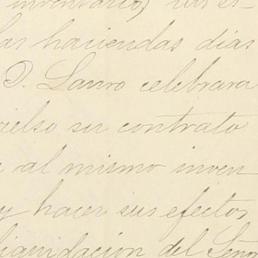 inventario) las es-
las haciendas dias
D. Lauro celebrara
celso su contrato
al mismo inven
y hacer sus efectos
liquidación del Señor